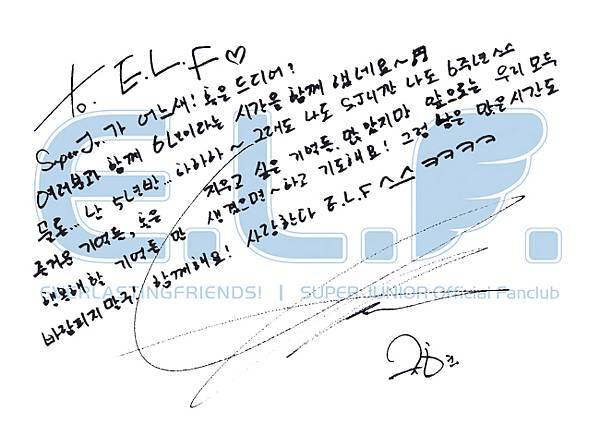 to. E.L.F ♡
Super Jr. 가 어느새! 혹은 드디어!
여러분과 함께 6년이라는 시간을 함께 했네요~♬
물론... 난 5년반... 하하하~ 그래도 나도 SJ니깐 나도 6주년ㅅㅅ
즐거운 기억들, 혹은 지우고 싶은 기억들, 많았지만 앞으로는 우리 모두
행복해할 기억들만 생겼으면~하고 기도해요! 그럼 남은 많은 시간도
바람피지 말구! 함께해요! 사랑한다 E.L.F ^^ ㅋㅋㅋㅋ
E.L.F.
EVERLASTINGFRIENDS! | SUPER JUNIOR Official Fanclub
규현